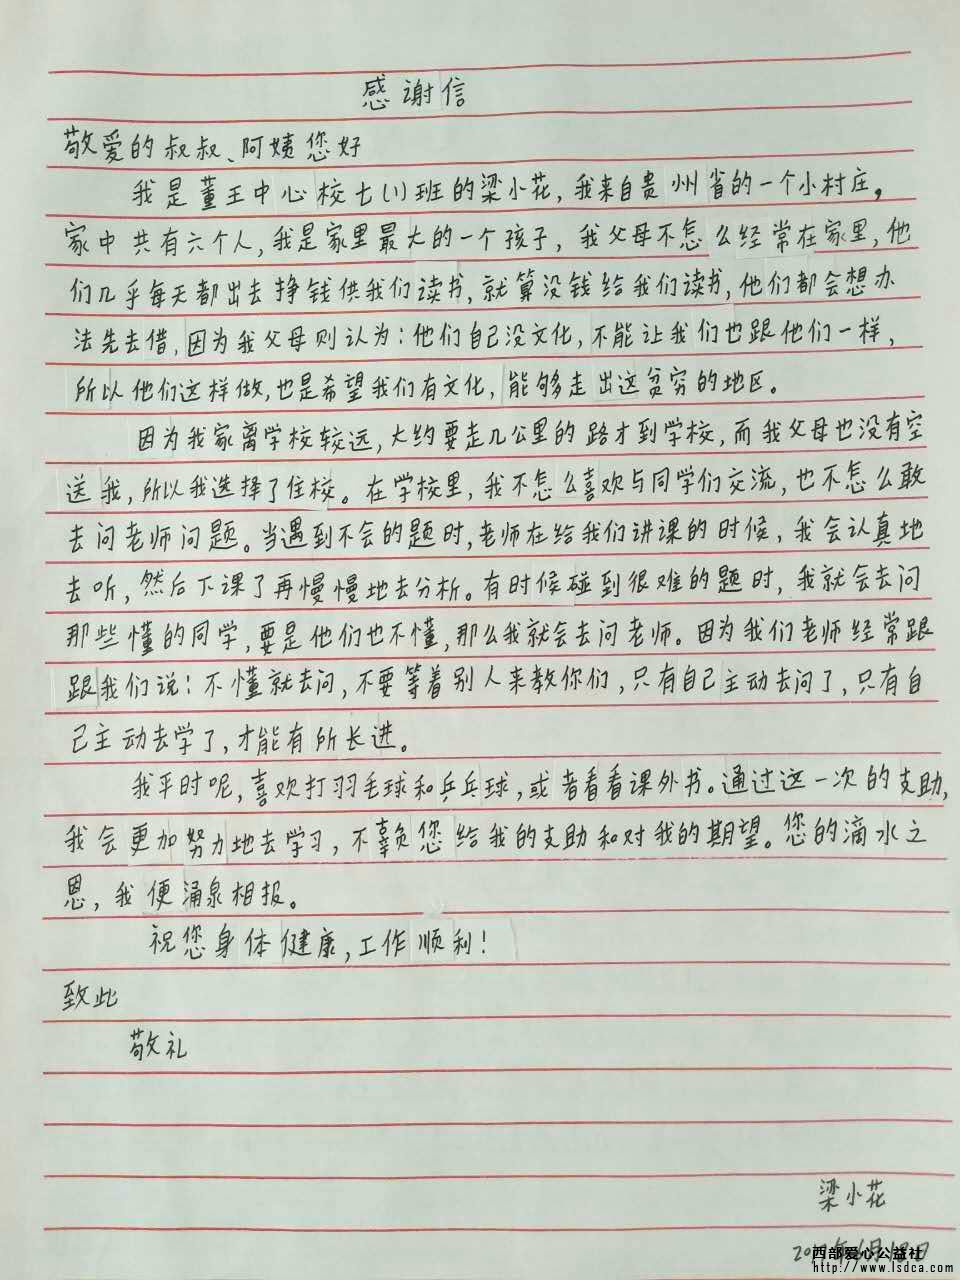 感谢信
敬爱的叔叔、阿姨您好
我是董王中心校七(1)班的梁小花,我来自贵州省的一个小村庄,
家中共有六个人,我是家里最大的一个孩子,我父母不怎么经常在家里,他
们几乎每天都出去挣钱供我们读书,就算没钱给我们读书,他们都会想办
法先去借,因为我父母则认为:他们自己没文化,不能让我们也跟他们一样,
所以他们这样做,也是希望我们有文化,能够走出这贫穷的地区。
因为我家离学校较远,大约要走几公里的路才到学校,而我父母也没有空
送我,所以我选择了住校。在学校里,我不怎么喜欢与同学们交流,也不怎么敢
去问老师问题。当遇到不会的题时,老师在给我们讲课的时候,我会认真地
去听,然后下课了再慢慢地去分析。有时候碰到很难的题时,我就会去问
那些懂的同学,要是他们也不懂,那么我就会去问老师。因为我们老师经常跟
跟我们说:不懂就去问,不要等着别人来教你们,只有自己主动去问了,只有自
己主动去学了,才能有所长进。
我平时呢,喜欢打羽毛球和乒乓球,或者看看课外书。通过这一次的支助,
我会更加努力地去学习,不辜负您给我的支助和对我的期望。您的滴水之
恩,我便涌泉相报。
祝您身体健康,工作顺利!
致此
敬礼
梁小花
西部爱心公益社
http://www.lsdca.com